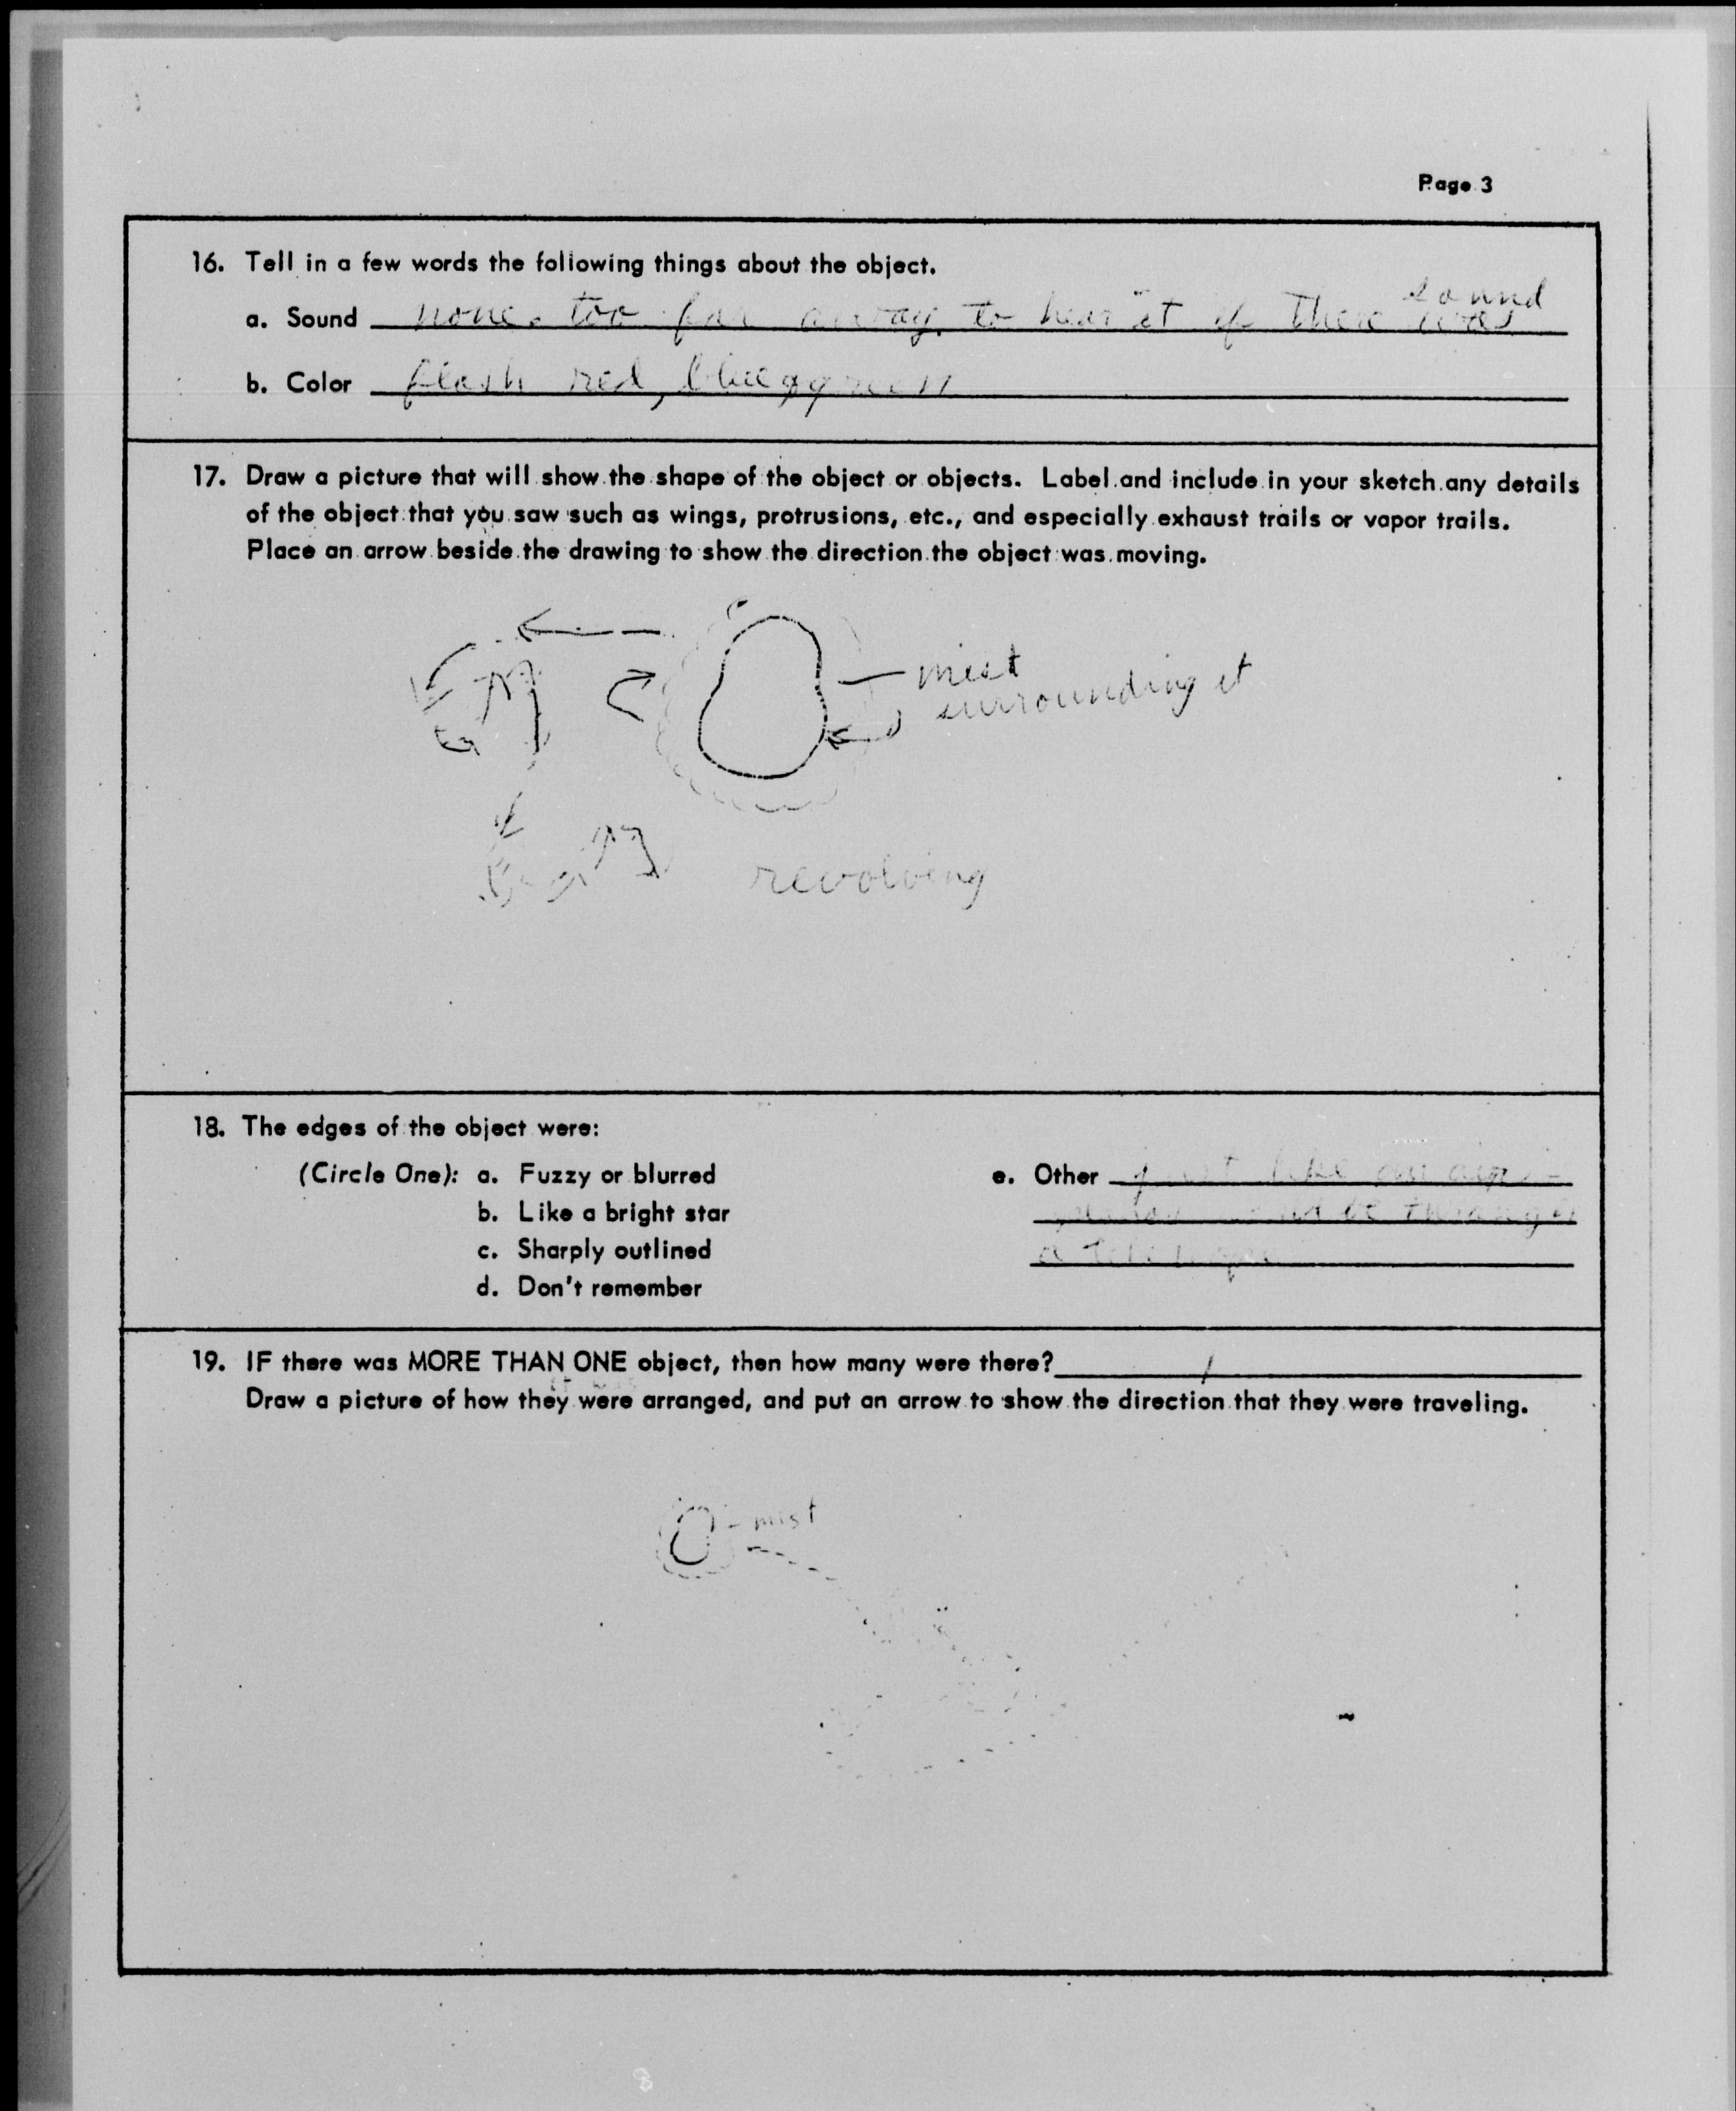 Page 3
16. Tell in a few words the following things about the object.
sound
a. Sound none. too far away. to hear it if there was
b. Color flash red, blue green
17. Draw a picture that will show the shape of the object or objects. Label and include in your sketch any details
of the object that you saw such as wings, protrusions, etc., and especially exhaust trails or vapor trails.
Place an arrow beside the drawing to show the direction the object was moving.
mist
surrounding it
revolving
18. The edges of the object were:
(Circle One): a. Fuzzy or blurred
b. Like a bright star
c. Sharply outlined
d. Don't remember
e. Other just like an
be through
a telescope
19. IF there was MORE THAN ONE object, then how many were there? 1
it was
Draw a picture of how they were arranged, and put an arrow to show the direction that they were traveling.
mist
8